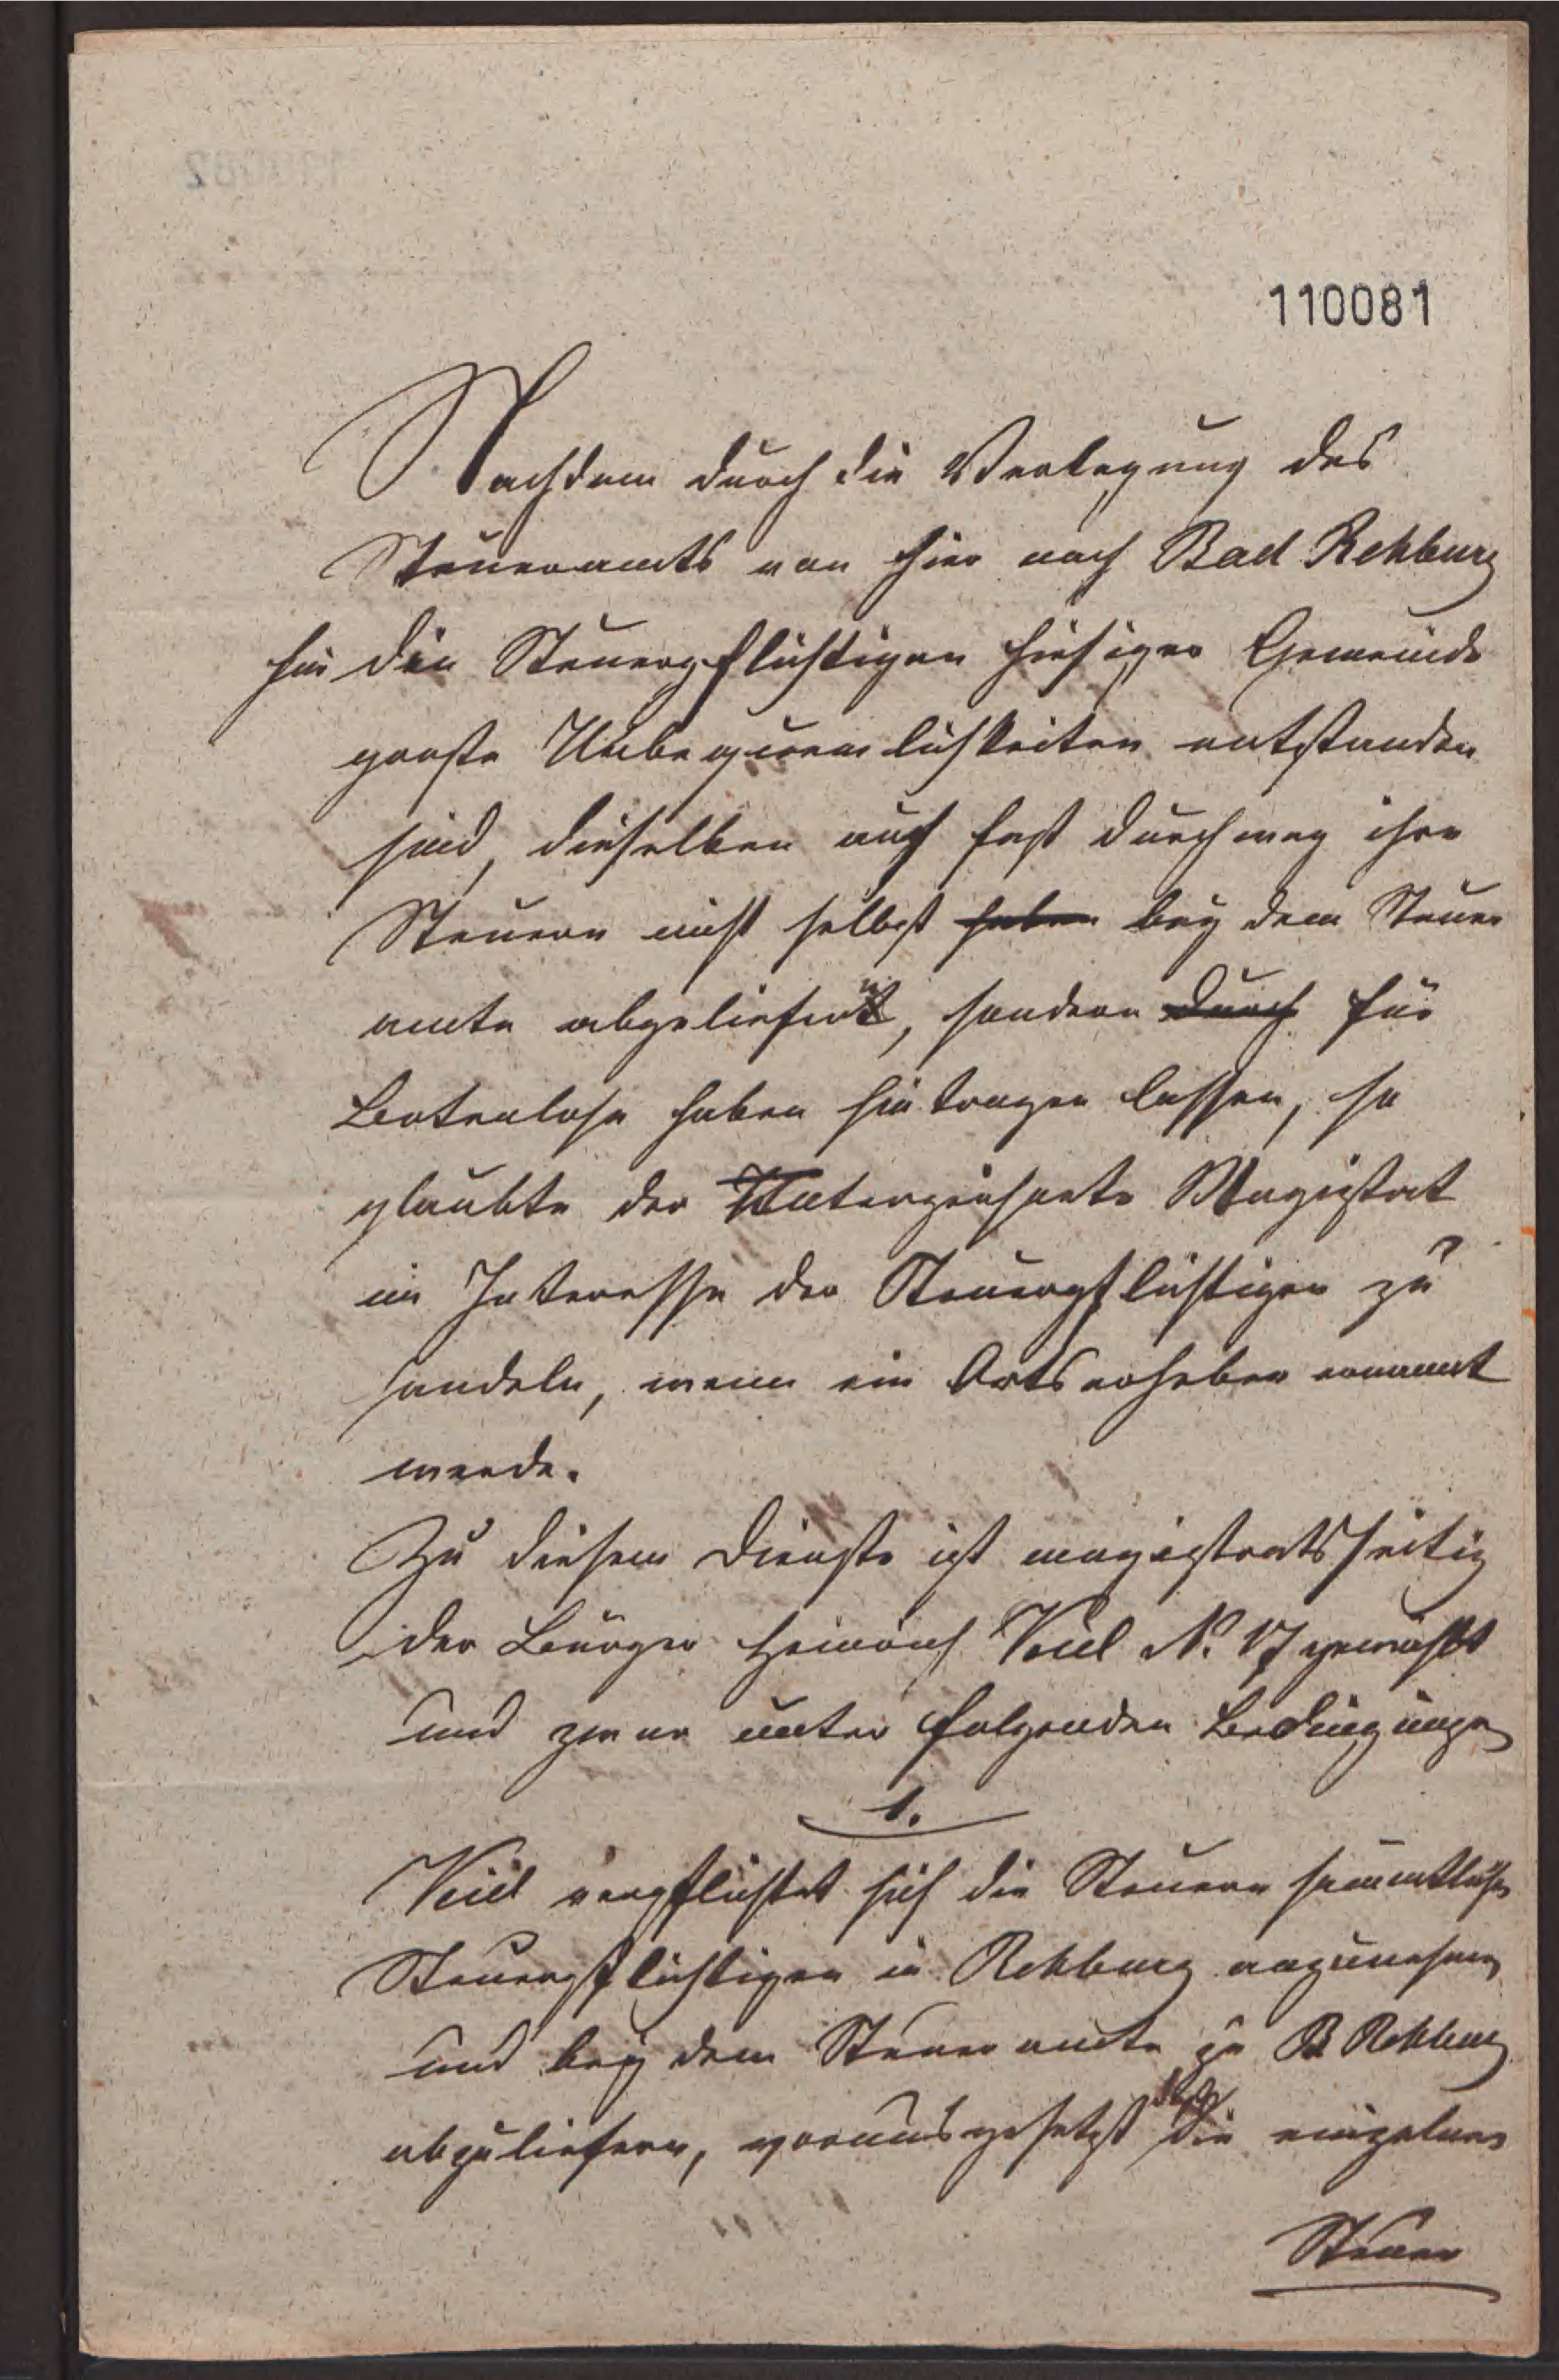 110081
Nachdem durch die Verlegung des
Steueramts von hier nach Bad Rehburg
für die Steuerpflichtigen hiesiger Gemeinde
große Unbequemlichkeiten entstanden
sind, dieselben auch fast durchweg ihre
Steuern nicht selbst haben bey dem Steuer
amte abgeliefert, sondern durch für
Botenlohn haben hintragen lassen, so
glaubte der Unterzeichnete Magistrat
im Interesse der Steuerpflichtigen zu
handeln, wenn ein Ortserheber ernannt
werde.
Zu diesem Dienste ist magistratsseitig
der Bürger Heinrich No. 17 gewählt
und zwar unter folgenden Bedingungen
1.
verpflichtet sich die Steuern sämmtlicher
Steuerpflichtigen in Rehburg anzunehmen
und bey dem Steueramte zu B Rehburg
abzuliefern, vorausgesetzt die einzelnen
Steuer